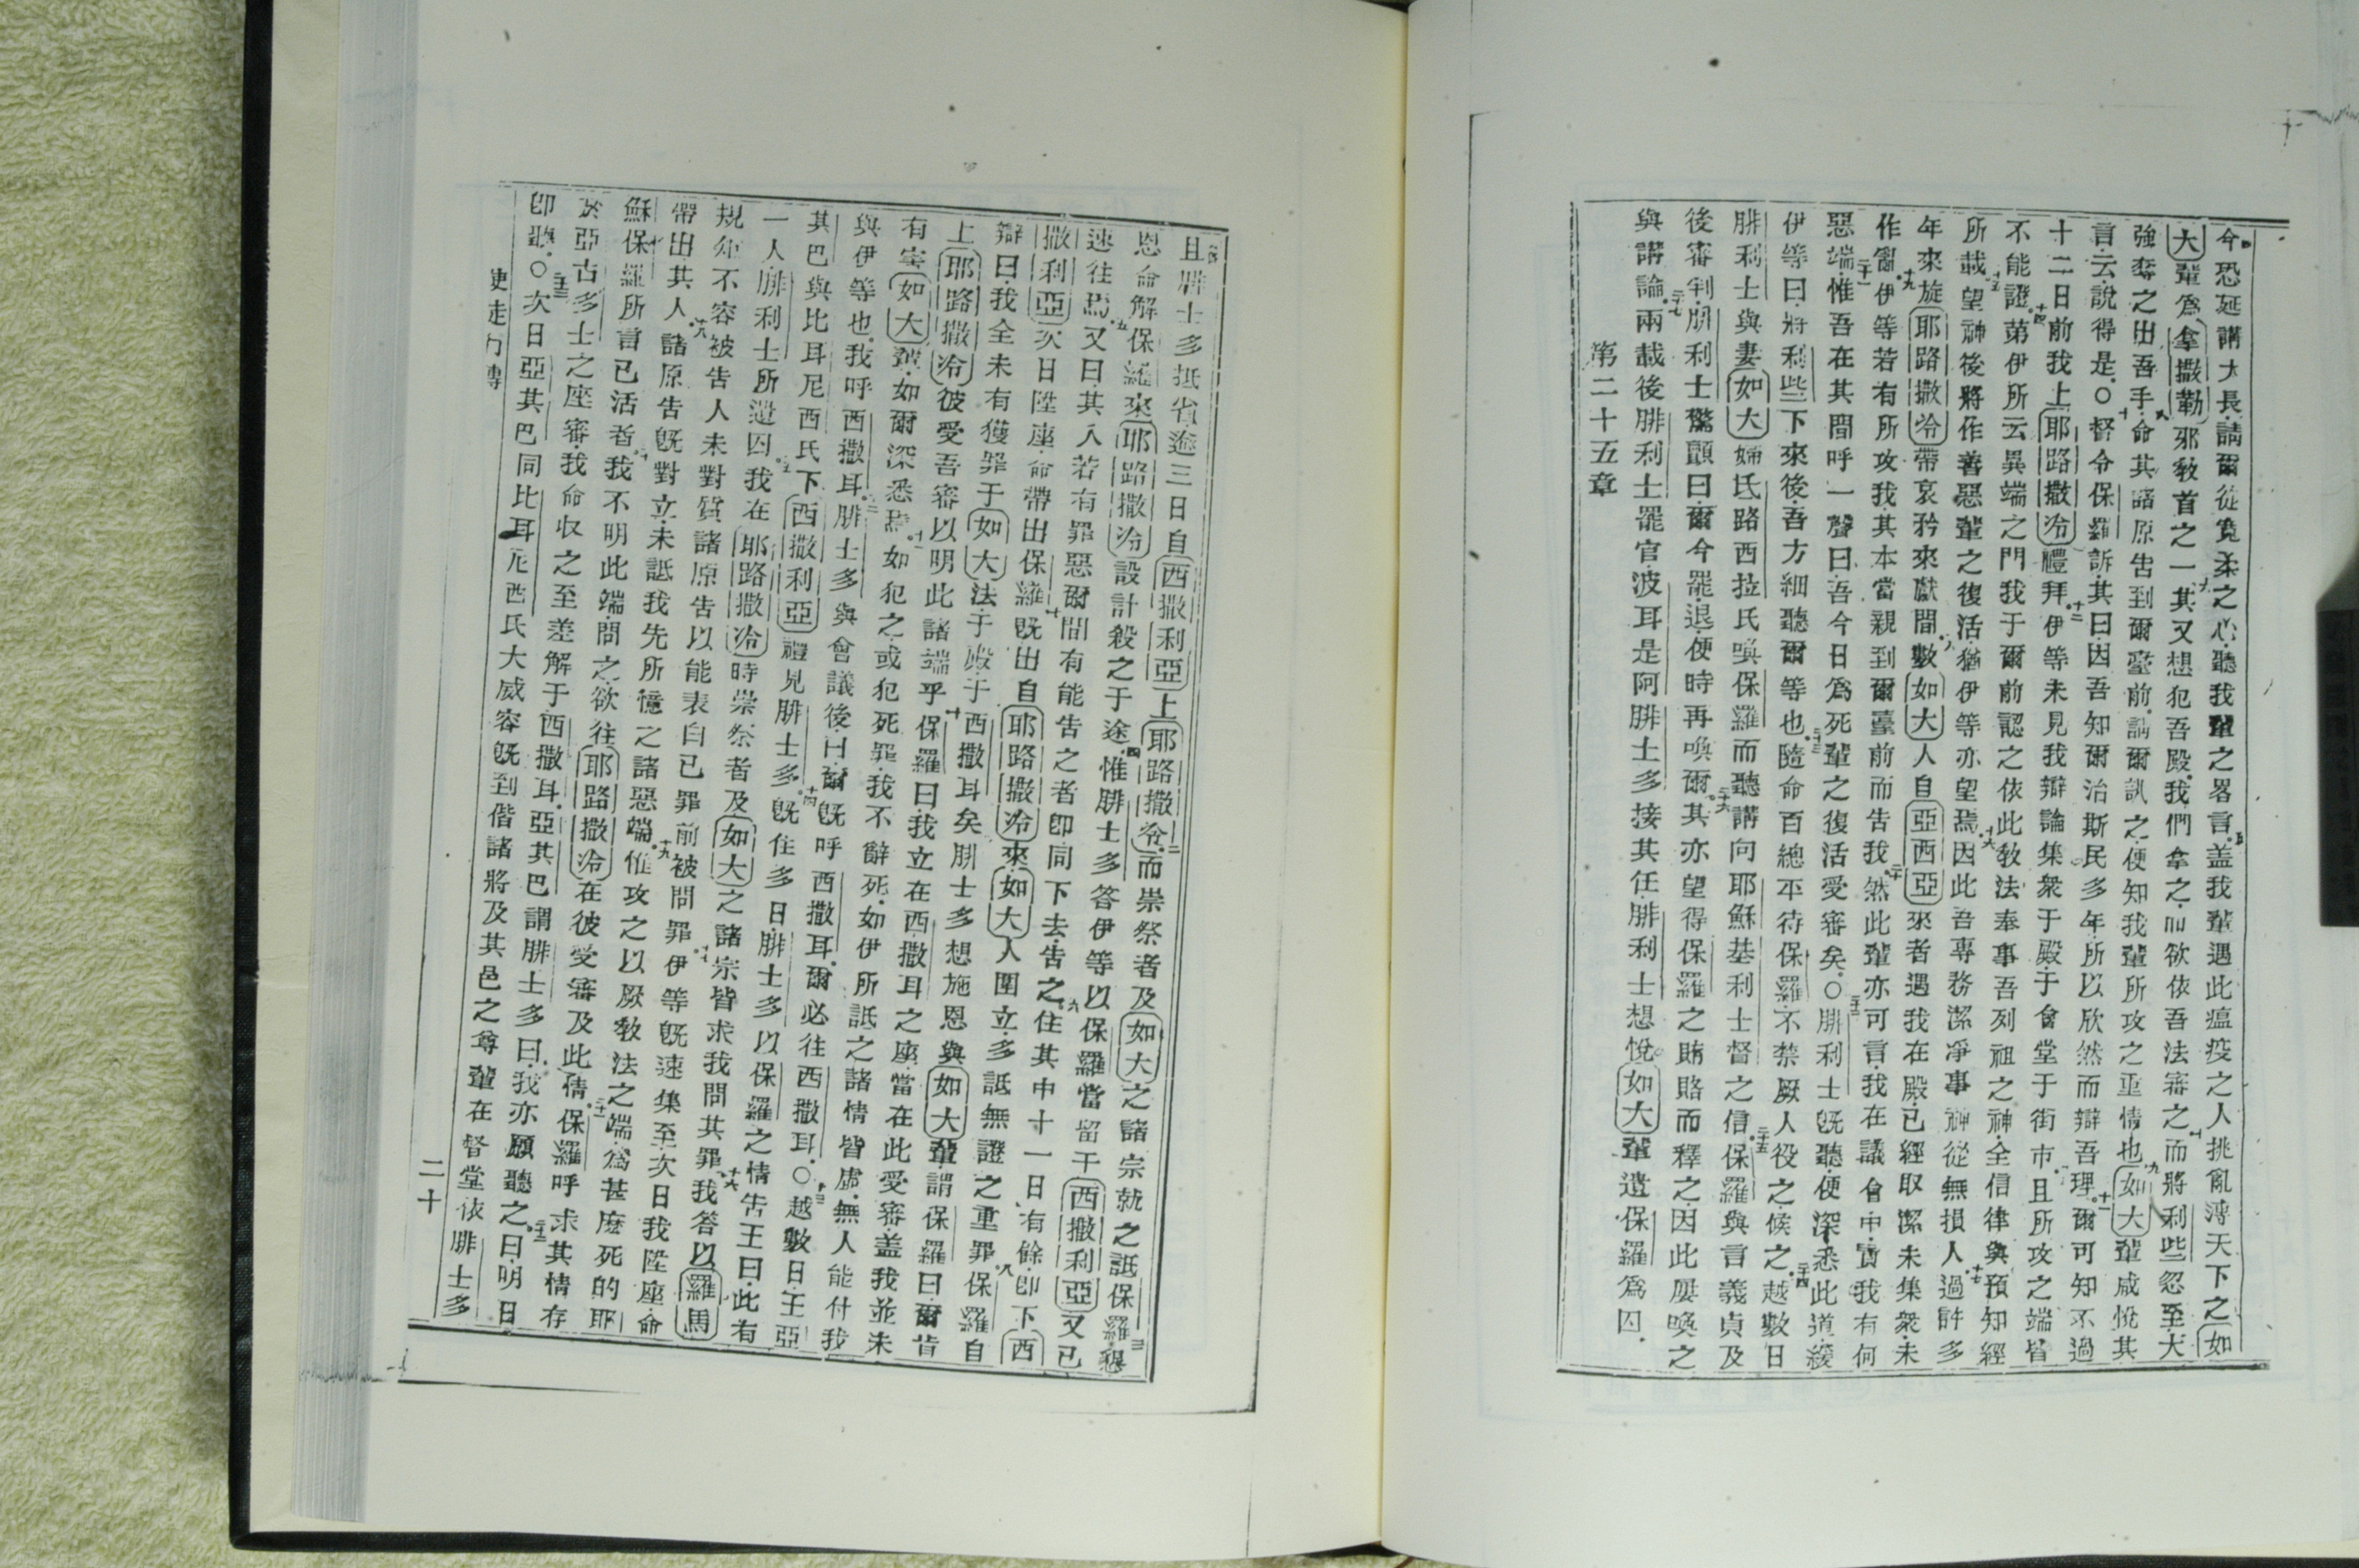 今恐延講大長請爾從寬柔之心聽我輩之畧言盖我輩遇此瘟疫之人挑亂溥天下之如
大輩爲拿撒勒邪教首之一其又想犯吾殿我們拿之而欲依吾法審之而將利些忽至大
強奪之出吾手命其諸原告到爾臺前請爾訊之便知我輩所攻之重情也如大輩咸悅其
言云說得是○督令保羅訴其曰因吾知爾治斯民多年所以欣然而辯吾理爾可知不過
十二日前我上耶路撒冷禮拜伊等未見我辯論集衆于殿于會堂于街市且所攻之端皆
不能證第伊所云異端之門我于爾前認之依此教法奉事吾列祖之神全信律與預知經
所載望神後將作善惡輩之復活猶伊等亦望焉因此吾專務潔凈事神從無損人過許多
年來旋耶路撒冷帶哀矜來獻間數如大人自亞西亞來者遇我在殿已經取潔未集衆未
作亂伊等若有所攻我其本當親到爾臺前而告我然此輩亦可言我在議會中實我有何
惡端惟吾在其間呼一聲曰吾今日爲死輩之復活受審矣○腓利士既聽便深悉此道緩
伊等曰將利些下來後吾方細聽爾等也隨命百總平待保羅不禁厥人役之候之越數日
腓利士與妻如大婦氏路西拉氏喚保羅而聽講向耶穌基利士督之信保羅與言義貞及
後審判腓利士驚顫曰爾今罷退便時再喚爾其亦望得保羅之賄賂而釋之因此屢喚之
與講論兩載後腓利士罷官波耳是阿腓士多接其任腓利士想悅如大輩遺保羅爲囚
第二十五章
且腓士多抵省逾三日自西撒利亞上耶路撒冷而崇祭者及如大之諸宗就之詆保羅懇
恩命解保羅來耶路撒冷設計殺之于途惟腓士多答伊等以保羅當留于西撒利亞又已
速往焉又曰其人若有罪惡爾間有能告之者即同下去告之住其中十一日有餘即下西
撒利亞次日陞座命帶出保羅既出自耶路撒冷來如大人圍立多詆無證之重罪保羅自
辯曰我全未有獲罪于如大法于殿于西撒耳矣腓士多想施恩與如大輩謂保羅曰爾肯
上耶路撒冷彼受吾審以明此諸端乎保羅曰我立在西撒耳之座當在此受審盖我並未
有害如大輩如爾深悉焉如犯之或犯死罪我不辭死如伊所詆之諸情皆虛無人能付我
與伊等也我呼西撒耳腓士多與會議後曰爾既呼西撒耳爾必往西撒耳○越數日王亞
其巴與比耳尼西氏下西撒利亞禮見腓士多既住多日腓士多以保羅之情告王曰此有
一人腓利士所遺囚我在耶路撒冷時崇祭者及如大之諸宗皆求我問其罪我答以羅馬
規矩不容被告人未對質諸原告以能表白已罪前被問罪伊等既速集至次日我陞座命
帶出其人諸原告既對立未詆我先所憶之諸惡端惟攻之以厥教法之端爲甚麽死的耶
穌保羅所言已活者我不明此端問之欲往耶路撒冷在彼受審及此情保羅呼求其情存
於亞古多士之座審我命収之至差解于西撒耳亞其巴謂腓士多曰我亦願聽之曰明日
即聽○次日亞其巴同比耳尼西氏大威容既到偕諸將及其邑之尊輩在督堂依腓士多
使徒行傳
二十